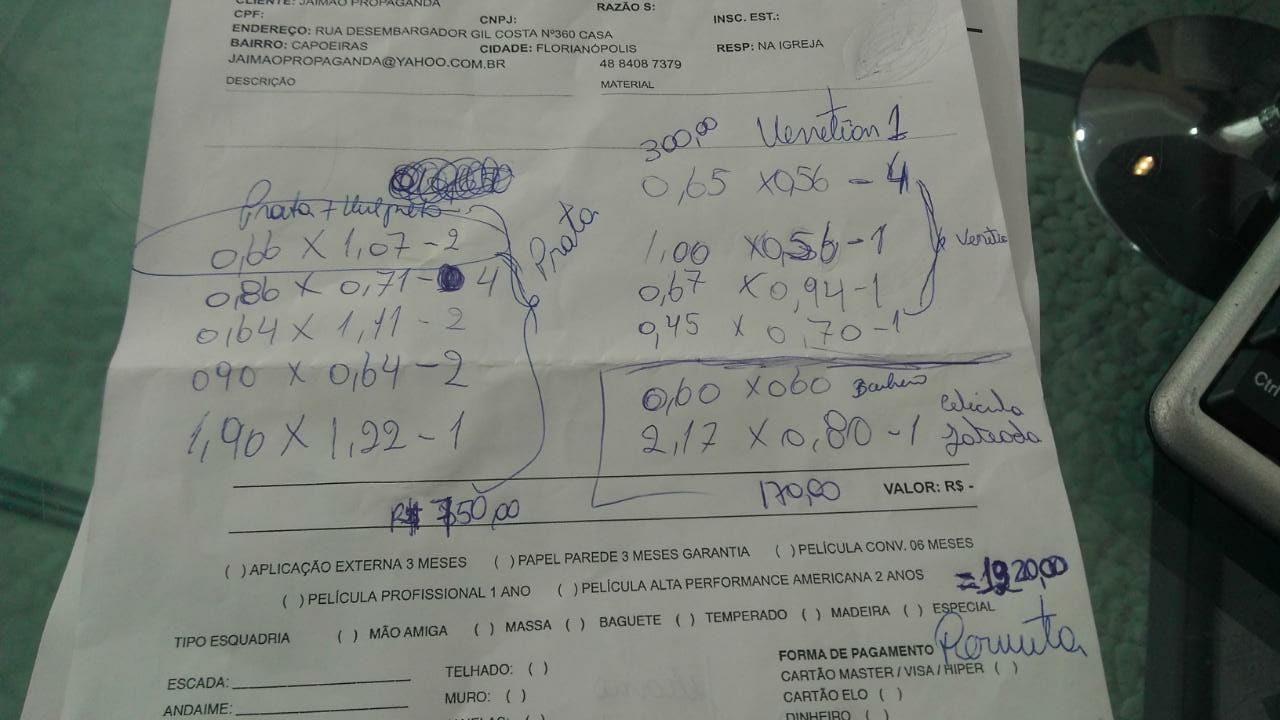 CLIENTE: JAIMÃO PROPAGANDA
CPF: CNPJ: RAZÃO S: INSC. EST.:
ENDEREÇO: RUA DESEMBARGADOR GIL COSTA Nº360 CASA
BAIRRO: CAPOEIRAS CIDADE: FLORIANÓPOLIS RESP: NA IGREJA
JAIMAOPROPAGANDA@YAHOO.COM.BR 48 8408 7379
DESCRIÇÃO MATERIAL
300,00 Venetian 1
Prata +
0,66 X 1,07 - 2
0,86 X 0,71 - 4
0,64 X 1,11 - 2
090 X 0,64 - 2
1,90 X 1,22 - 1
Prata
0,65 X 0,56 - 4
1,00 X 0,56 - 1
0,67 X 0,94 - 1
0,45 X 0,70 - 1
0,60 X 060 Banheiro
2,17 X 0,80 - 1 Jateada
R$ 750,00
170,00 VALOR: R$ -
( ) APLICAÇÃO EXTERNA 3 MESES ( ) PAPEL PAREDE 3 MESES GARANTIA ( ) PELÍCULA CONV. 06 MESES
( ) PELÍCULA PROFISSIONAL 1 ANO ( ) PELÍCULA ALTA PERFORMANCE AMERICANA 2 ANOS = 1920,00
TIPO ESQUADRIA ( ) MÃO AMIGA ( ) MASSA ( ) BAGUETE ( ) TEMPERADO ( ) MADEIRA ( ) ESPECIAL
FORMA DE PAGAMENTO Permuta
ESCADA: TELHADO: ( ) CARTÃO MASTER / VISA / HIPER ( )
ANDAIME: MURO: ( ) CARTÃO ELO ( )
DINHEIRO ( )
Ctrl